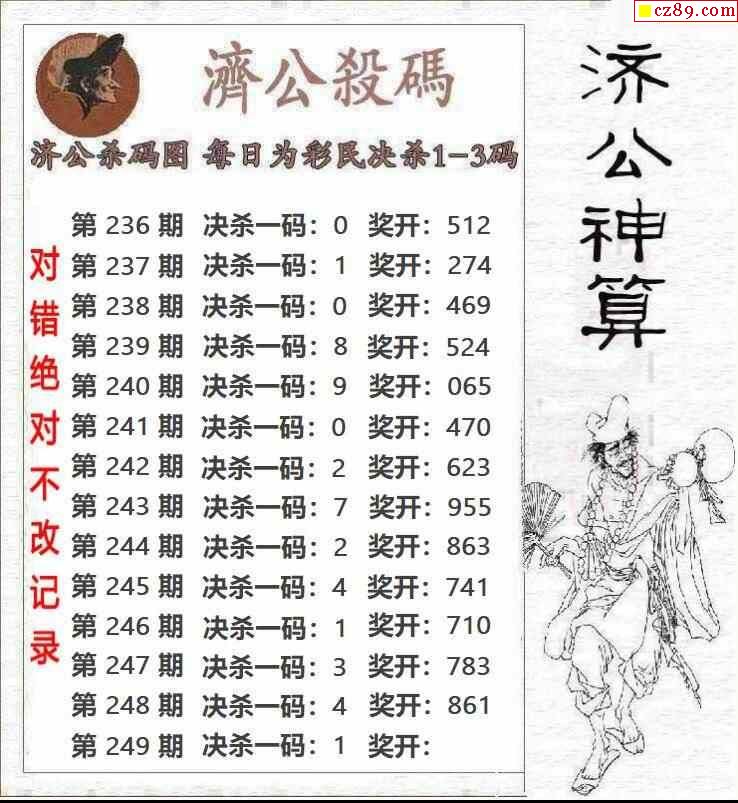 cz89.com
濟公殺碼
济公杀码图 每日为彩民决杀1-3码
第 236 期 决杀一码：0 奖开：512
第 237 期 决杀一码：1 奖开：274
第 238 期 决杀一码：0 奖开：469
第 239 期 决杀一码：8 奖开：524
第 240 期 决杀一码：9 奖开：065
第 241 期 决杀一码：0 奖开：470
第 242 期 决杀一码：2 奖开：623
第 243 期 决杀一码：7 奖开：955
第 244 期 决杀一码：2 奖开：863
第 245 期 决杀一码：4 奖开：741
第 246 期 决杀一码：1 奖开：710
第 247 期 决杀一码：3 奖开：783
第 248 期 决杀一码：4 奖开：861
第 249 期 决杀一码：1 奖开：
对错绝对不改记录
济公神算